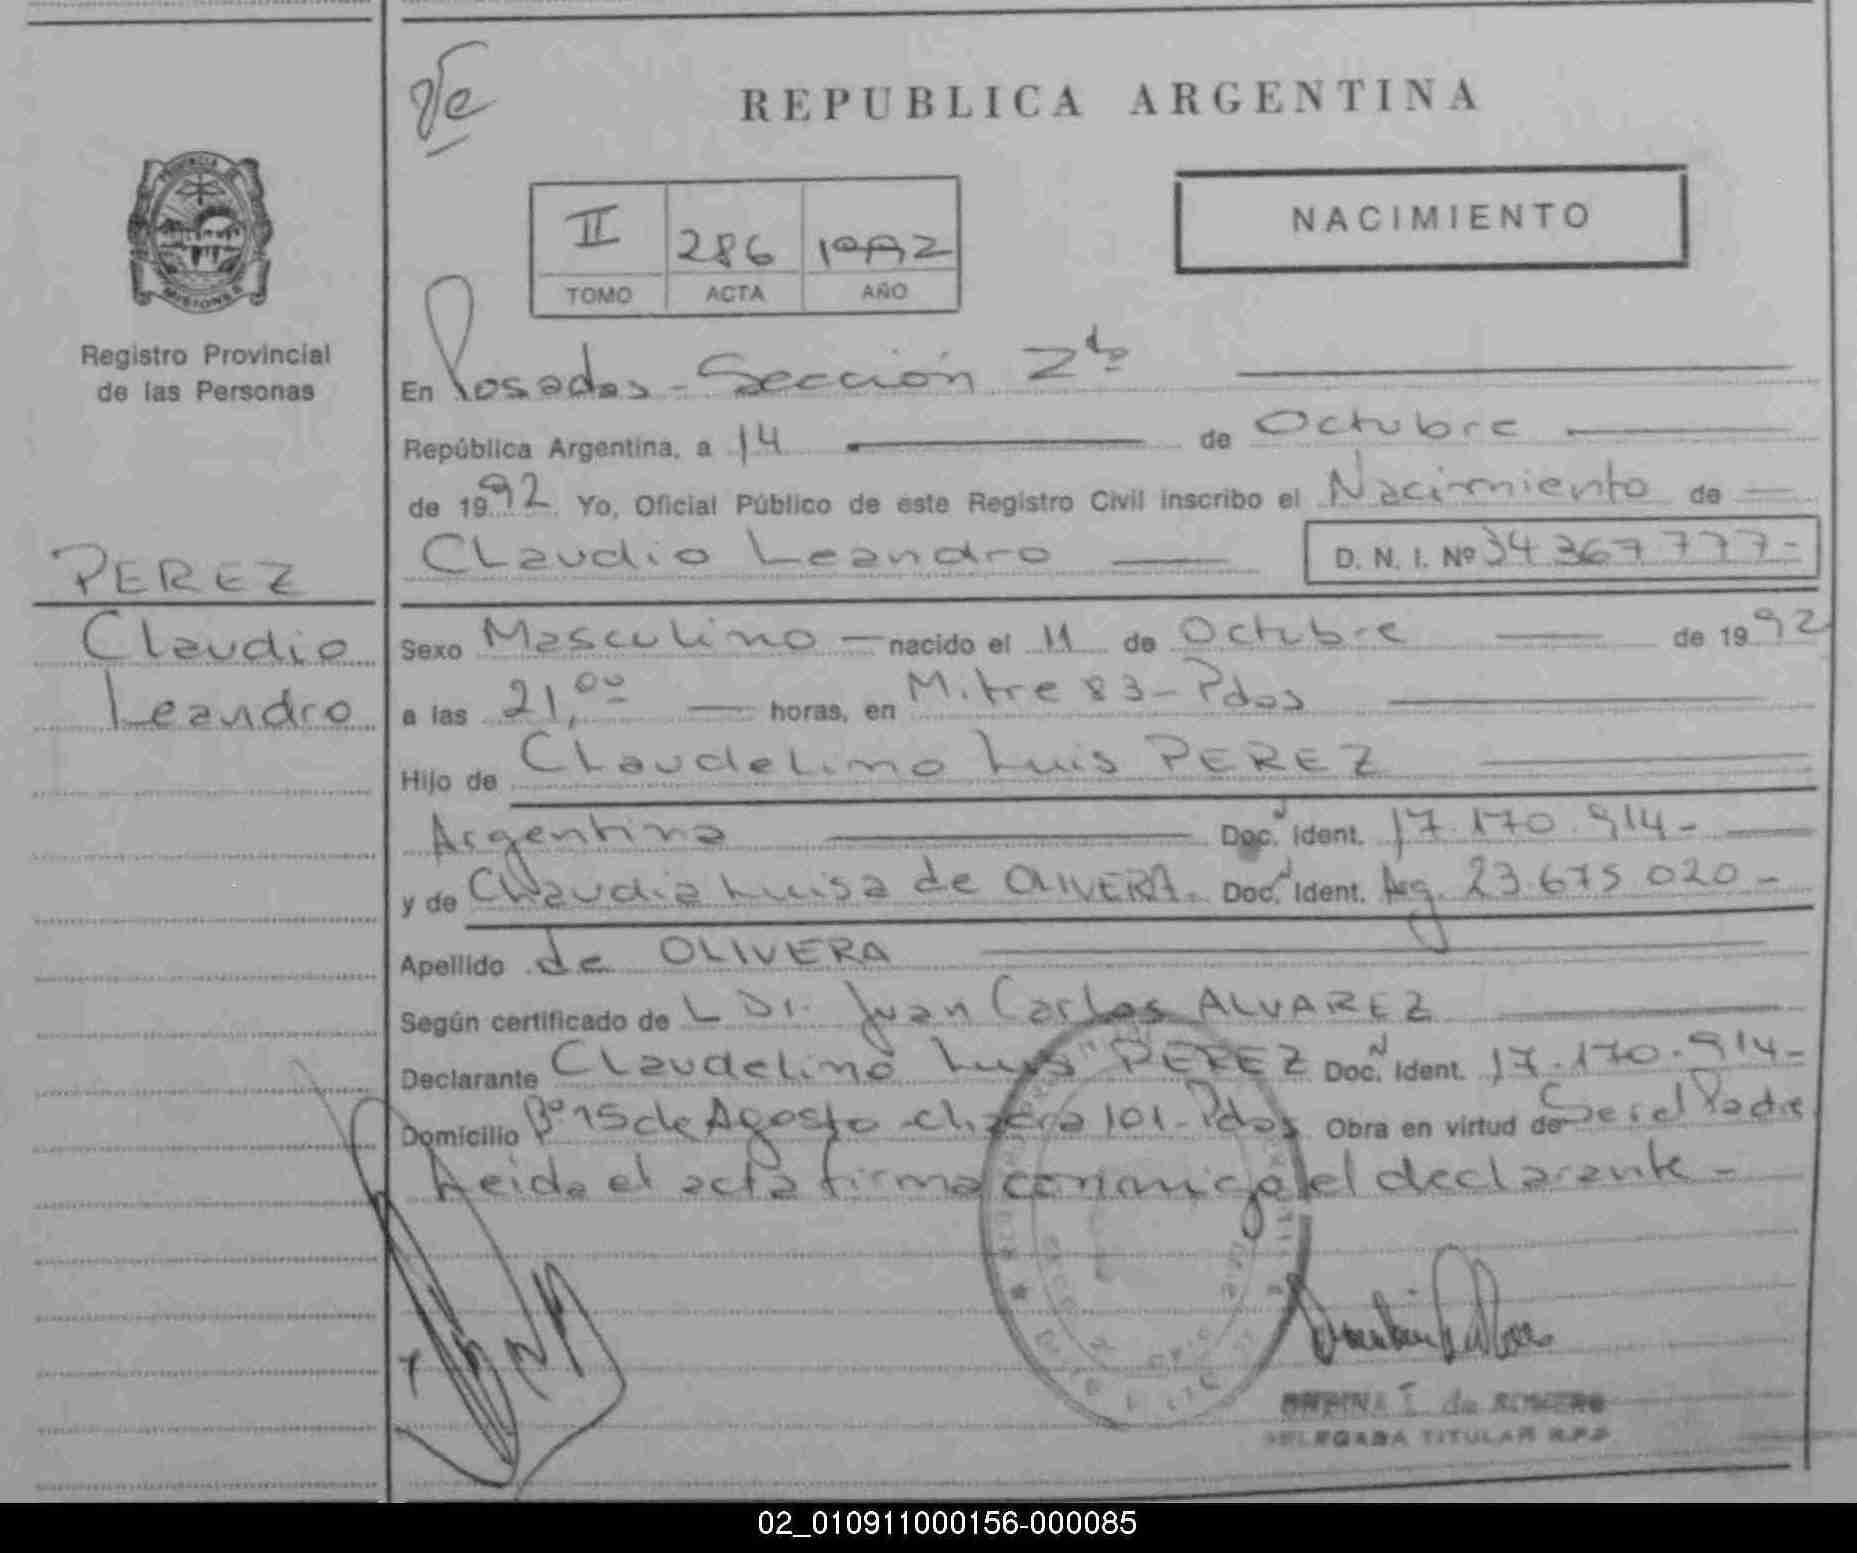 Ve
REPUBLICA ARGENTINA
PROVINCIA
MISIONES
NACIMIENTO
II 286 1992
TOMO ACTA AÑO
Registro Provincial
de las Personas
En Posadas - Sección 2da
República Argentina, a 14 de Octubre
de 1992 Yo, Oficial Público de este Registro Civil inscribo el Nacimiento de
Claudio Leandro D. N. I. Nº 34 367 777-
PEREZ
Claudio
Leandro
Sexo Masculino nacido el 11 de Octubre de 1992
a las 21,00 horas, en Mitre 83 - Pdas
Hijo de Claudelino Luis PEREZ
Argentina Doc. Ident. 17.170.914-
y de Claudia Luisa de OLIVERA. Doc. Ident. Arg. 23.675 020-
Apellido de OLIVERA
Según certificado de L Dr. Juan Carlos ALVAREZ
Declarante Claudelino Luis PEREZ Doc. Ident. 17.170.914-
Domicilio Bº 15 de Agosto chacra 101 - Pdas Obra en virtud de Ser el Padre
Leida el acta firma conmigo el declarante -
I. de ROMERO
DELEGADA TITULAR R.P.P.
02_010911000156-000085